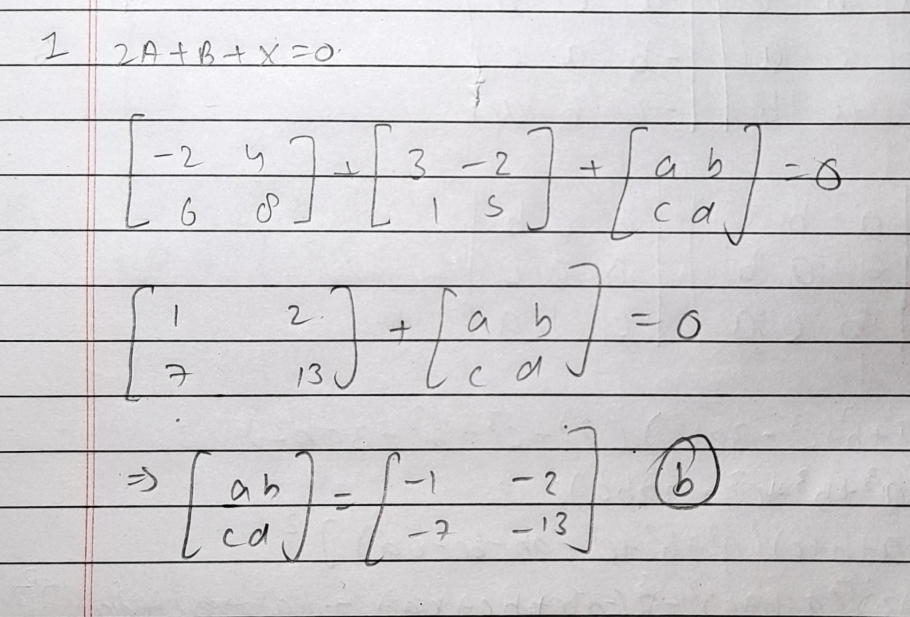 1 2A+B+X=0
[-2 4 6 8] + [3 -2 1 5] + [a b c d] = 0
[1 2 7 13] + [a b c d] = 0
⇒ [a b c d] = [-1 -2 -7 -13] b